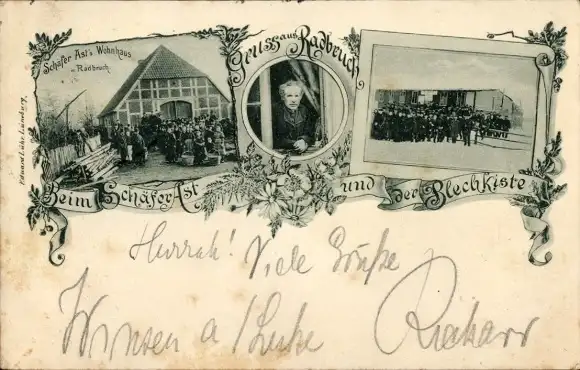 Schäfer Ast's Wohnhaus
in Radbruch
Gruss aus Radbruch
Eduard Lühr, Lüneburg.
Beim Schäfer Ast und der Blechkiste
Hurrah! Viele Grüße
Winsen a/Luhe
Richard